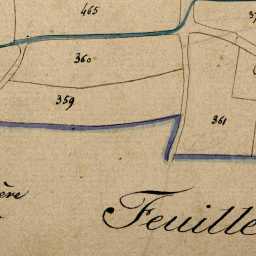 465
360
359
361
ère
Feuille